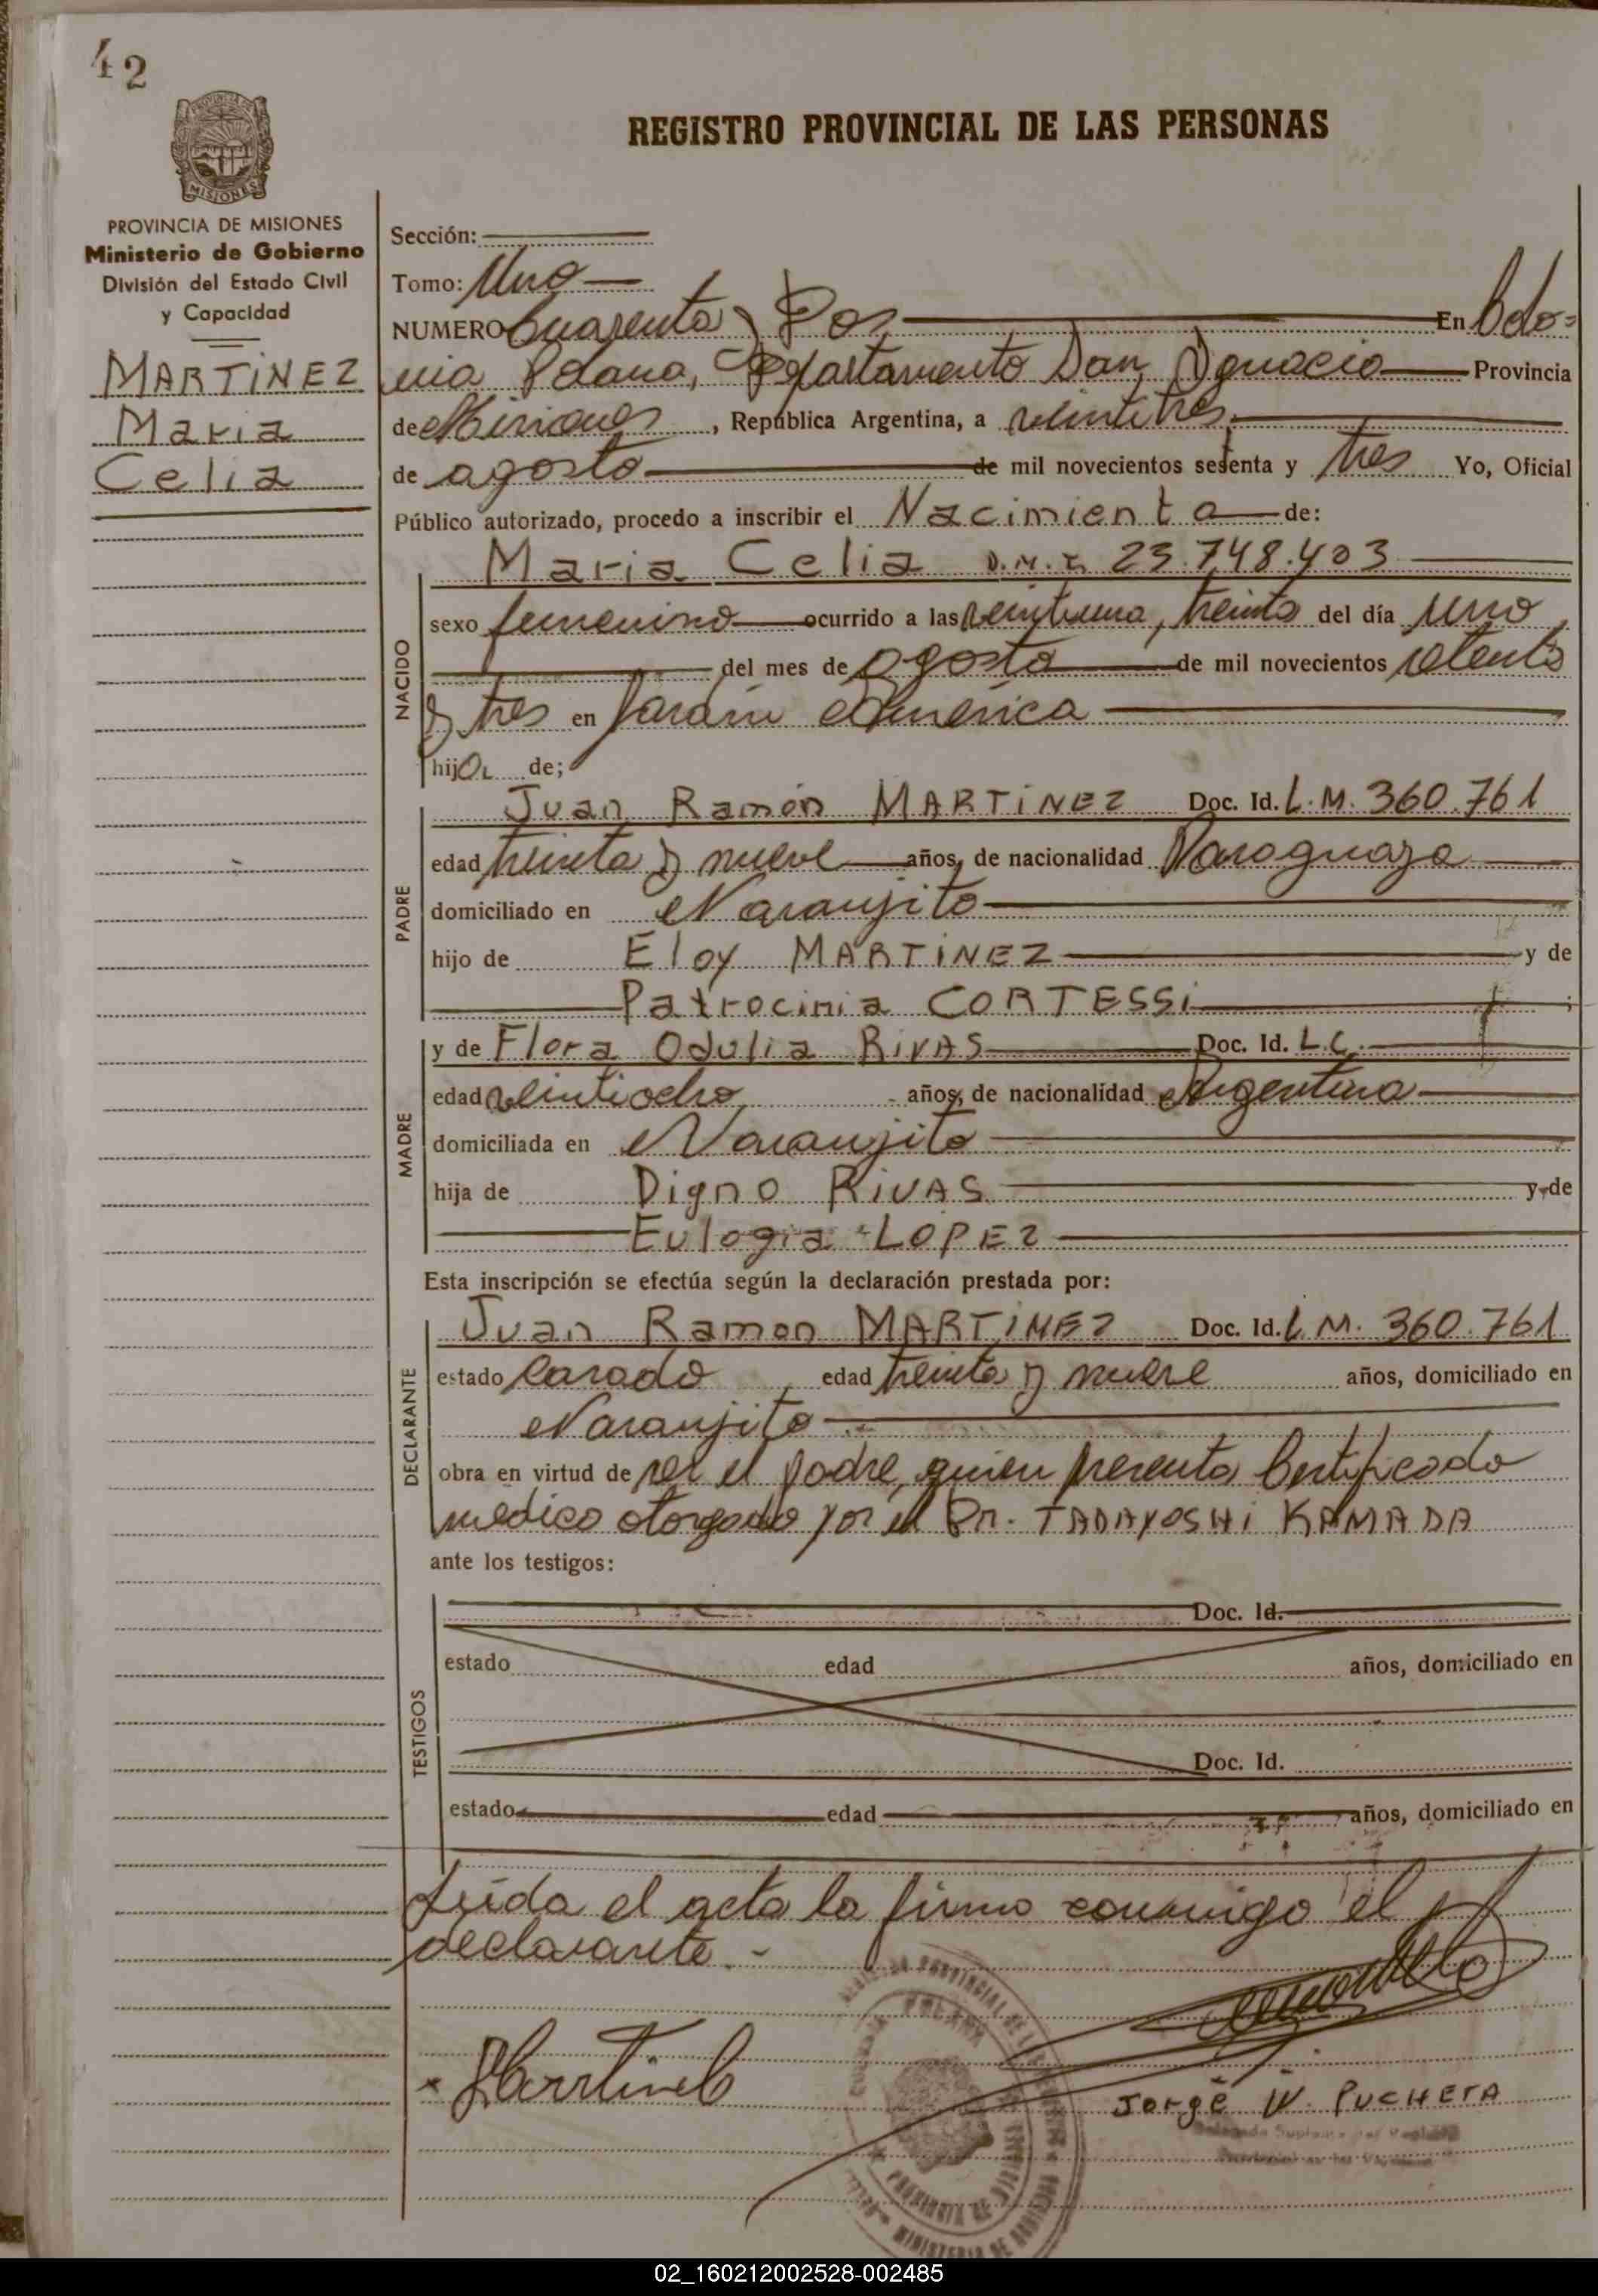 42
REGISTRO PROVINCIAL DE LAS PERSONAS
PROVINCIA DE MISIONES
MISIONES
PROVINCIA DE MISIONES
Ministerio de Gobierno
División del Estado Civil
y Capacidad
MARTINEZ
Maria
Celia
Sección:
Tomo: Uno
NUMERO Cuarenta y Dos En Colo=
nia Polana, Departamento San Ignacio Provincia
de Misiones, República Argentina, a veintitres
de agosto de mil novecientos setenta y tres Yo, Oficial
Público autorizado, procedo a inscribir el Nacimiento de:
Maria Celia D.N.I. 23.748.403
NACIDO
sexo femenino ocurrido a las veintiuna, treinta del día uno
del mes de agosto de mil novecientos setenta
y tres en Jardín América
hija de;
PADRE
Juan Ramón MARTINEZ Doc. Id. L.M. 360.761
edad treinta y nueve años, de nacionalidad Paraguaya
domiciliado en Naranjito
hijo de Eloy MARTINEZ y de
Patrocinia CORTESSI ;
MADRE
y de Flora Odulia RIVAS Doc. Id. L.C.
edad veintiocho años, de nacionalidad Argentina
domiciliada en Naranjito
hija de Digno RIVAS y de
Eulogia LOPEZ
Esta inscripción se efectúa según la declaración prestada por:
DECLARANTE
Juan Ramon MARTINEZ Doc. Id. L.M. 360.761
estado casado edad treinta y nueve años, domiciliado en
Naranjito
obra en virtud de ser el padre, quien presenta Certificado
médico otorgado por el Dr. TADAYOSHI KAMADA
ante los testigos:
TESTIGOS
Doc. Id.
estado edad años, domiciliado en
Doc. Id.
estado edad años, domiciliado en
Leída el acta la firma conmigo el
declarante.-
x Martinez
Jorge W. PUCHETA
02_160212002528-002485